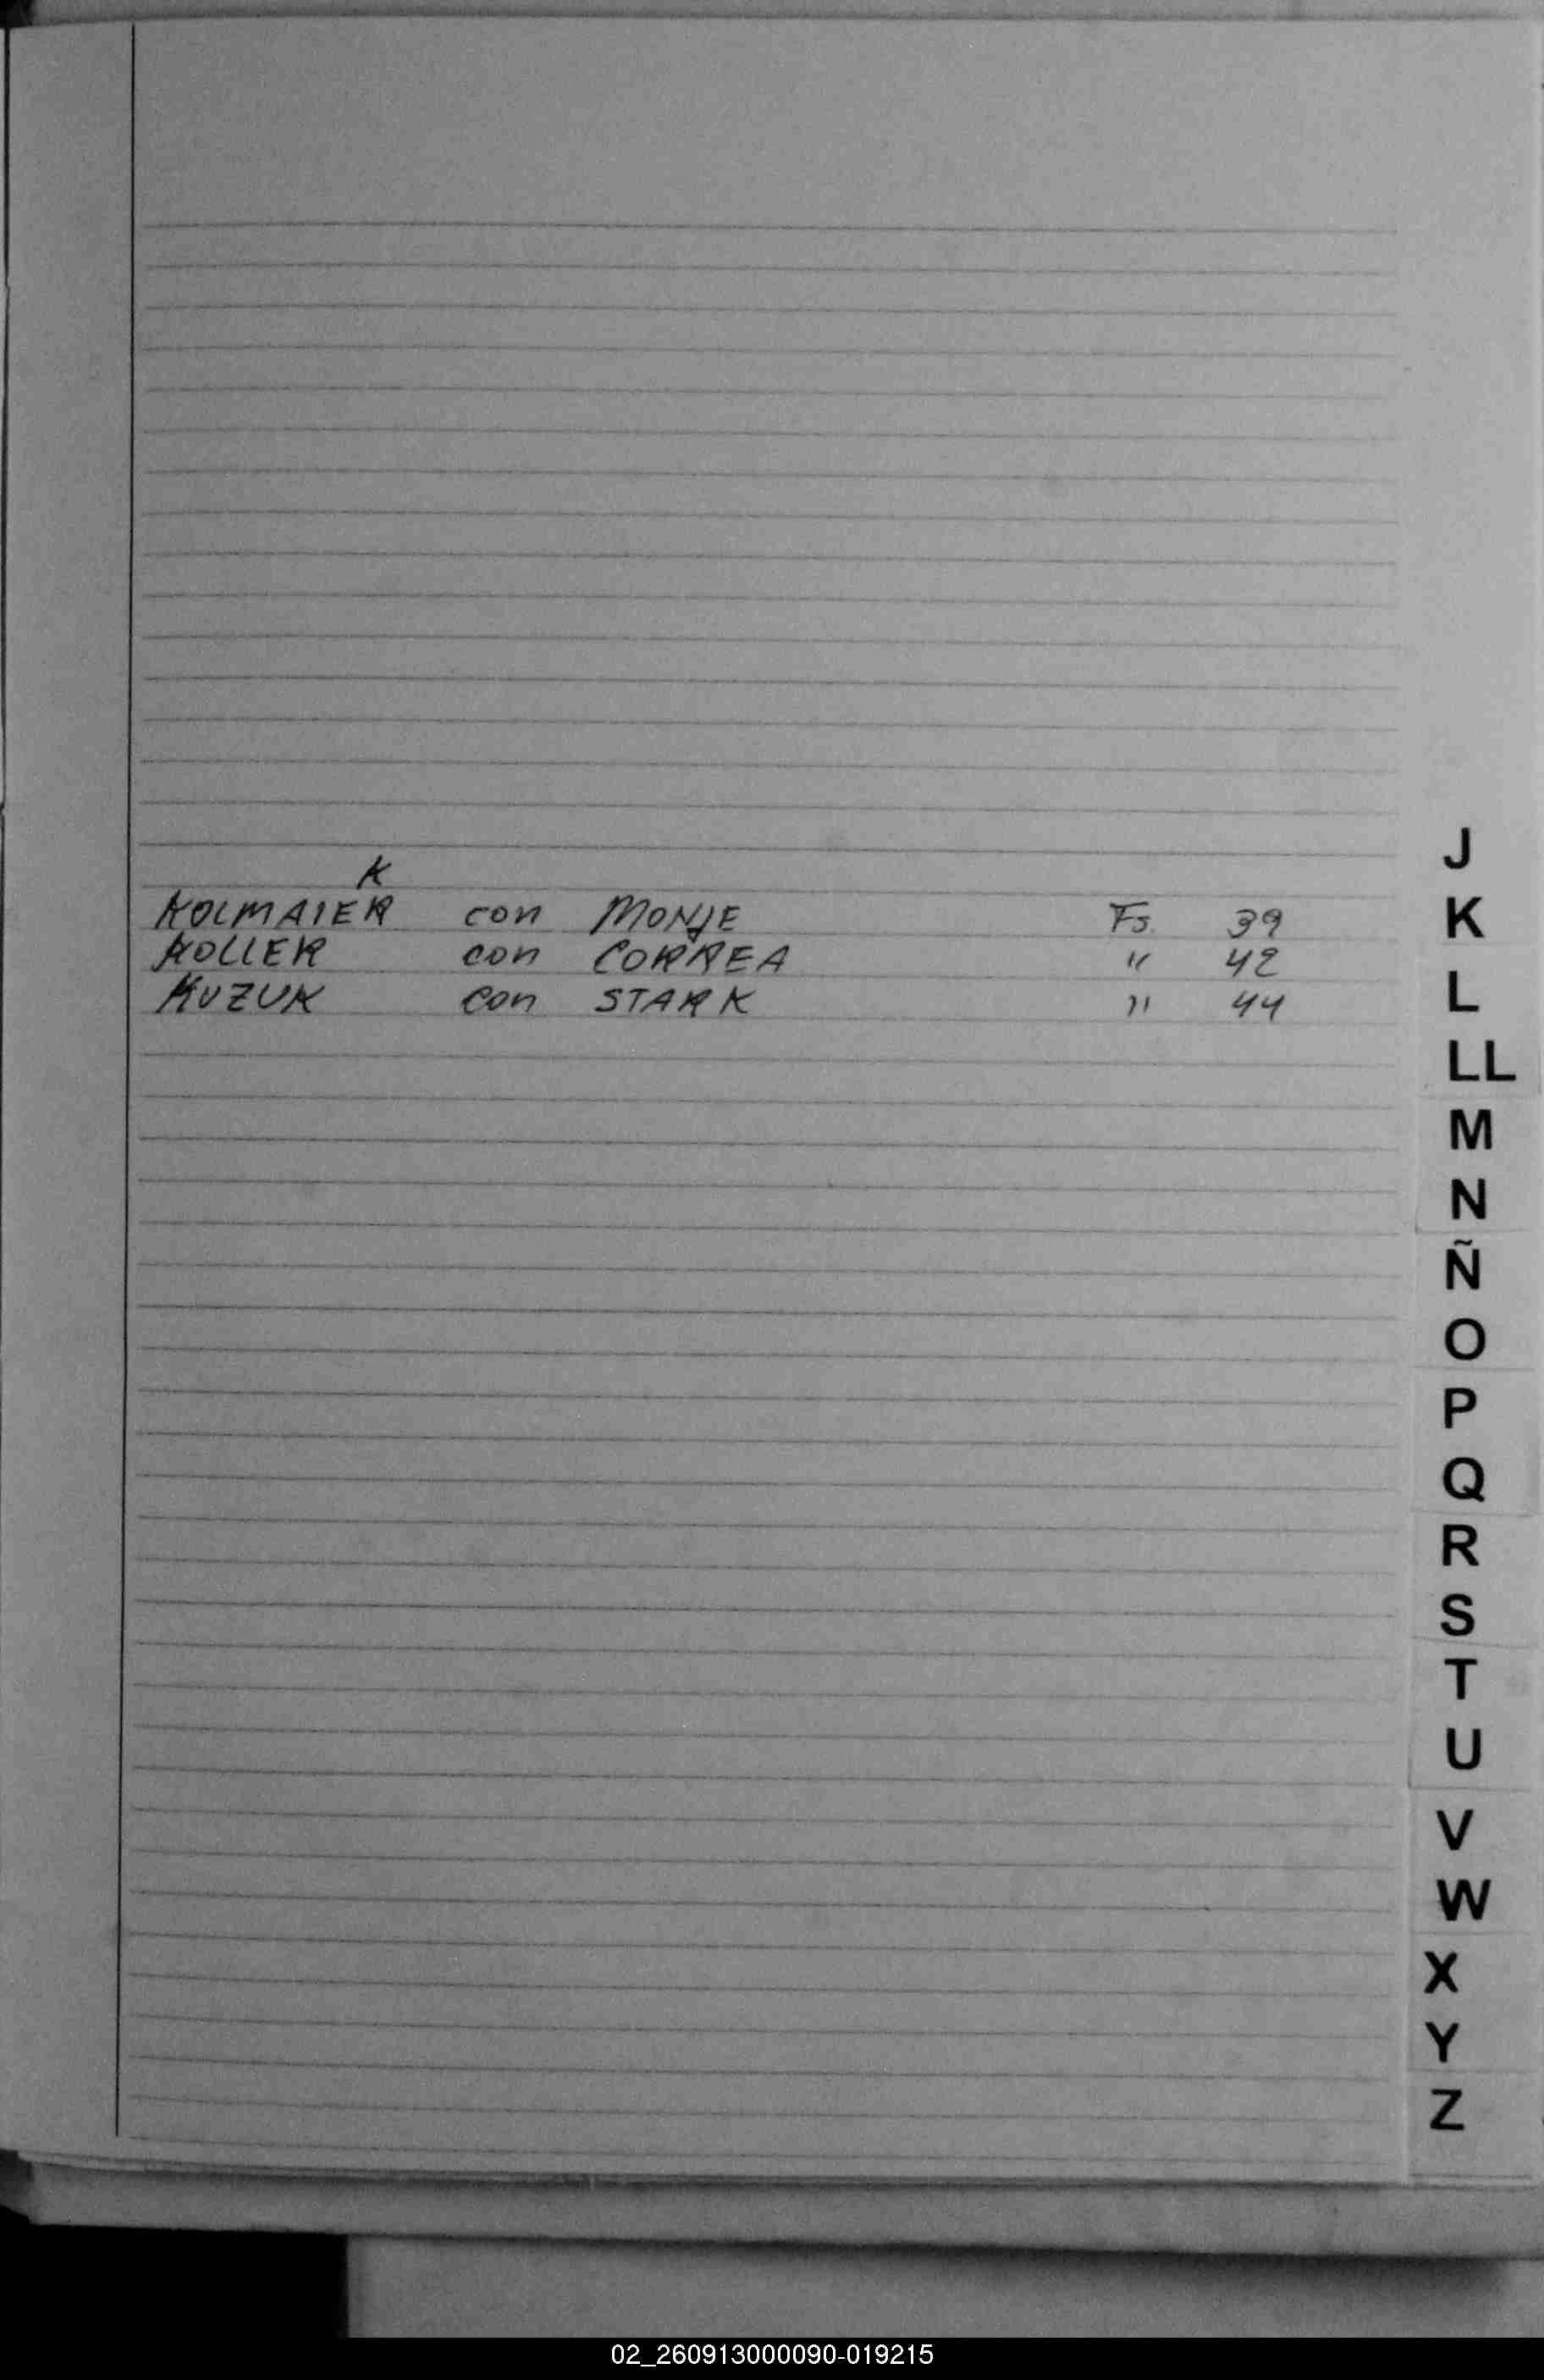 K
KOLMAIER con MONJE Fs. 39
KOLLER con CORREA " 42
KUZUK con STARK " 44
J
K
L
LL
M
N
Ñ
O
P
Q
R
S
T
U
V
W
X
Y
Z
02_260913000090-019215